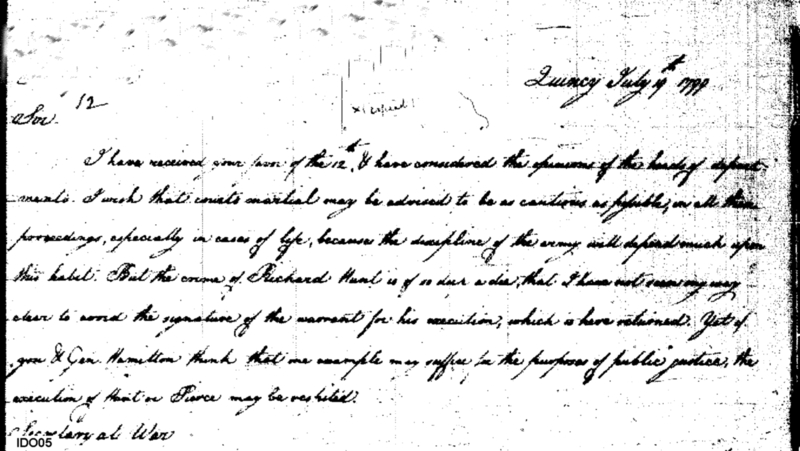 Quincy July 19th 1799
12
Sir.
I have received your favor of the 12th, & have considered the opinions of the heads of depart-
ments. I wish that courts martial may be advised to be as cautious as possible, in all their
proceedings, especially in cases of life, because the discipline of the army will depend much upon
this habit. But the crime of Richard Hunt is of so deep a die, that I have not seen my way
clear to avoid the signature of the warrant for his execution, which is here returned. Yet if
you & Gen. Hamilton think that one example may suffice for the purposes of public justice, the
execution of Hunt or Pierce may be respited.
Secretary at War
IDO05